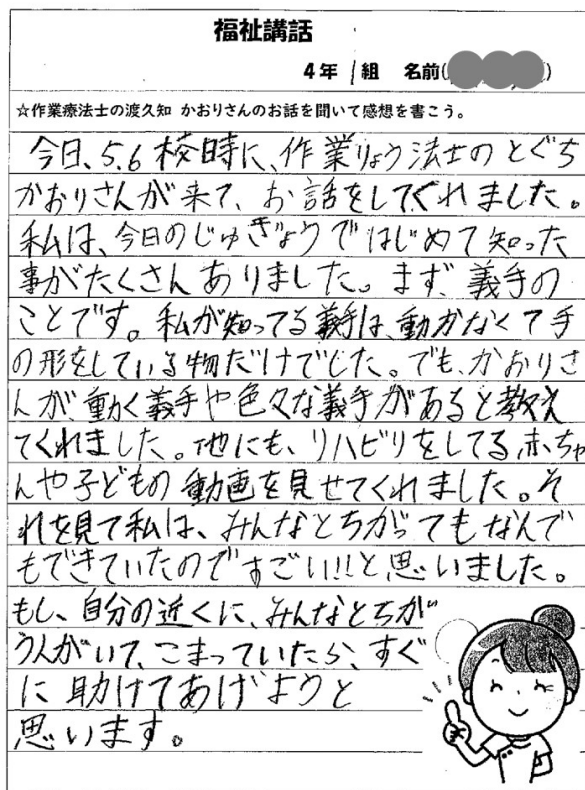 福祉講話
4年 1組 名前( )
☆作業療法士の渡久知 かおりさんのお話を聞いて感想を書こう。
今日、5.6校時に、作業りょう法士のとぐち
かおりさんが来て、お話をしてくれました。
私は、今日のじゅぎょうではじめて知った
事がたくさんありました。まず、義手の
ことです。私が知ってる義手は、動かなくて手
の形をしている物だけでした。でも、かおりさ
んが、動く義手や色々な義手があると教え
てくれました。他にも、リハビリをしてる、赤ちゃ
んや子どもの動画を見せてくれました。そ
れを見て私は、みんなとちがってもなんで
もできていたのですごい!!と思いました。
もし、自分の近くに、みんなとちが
う人がいて、こまっていたら、すぐ
に助けてあげようと
思います。